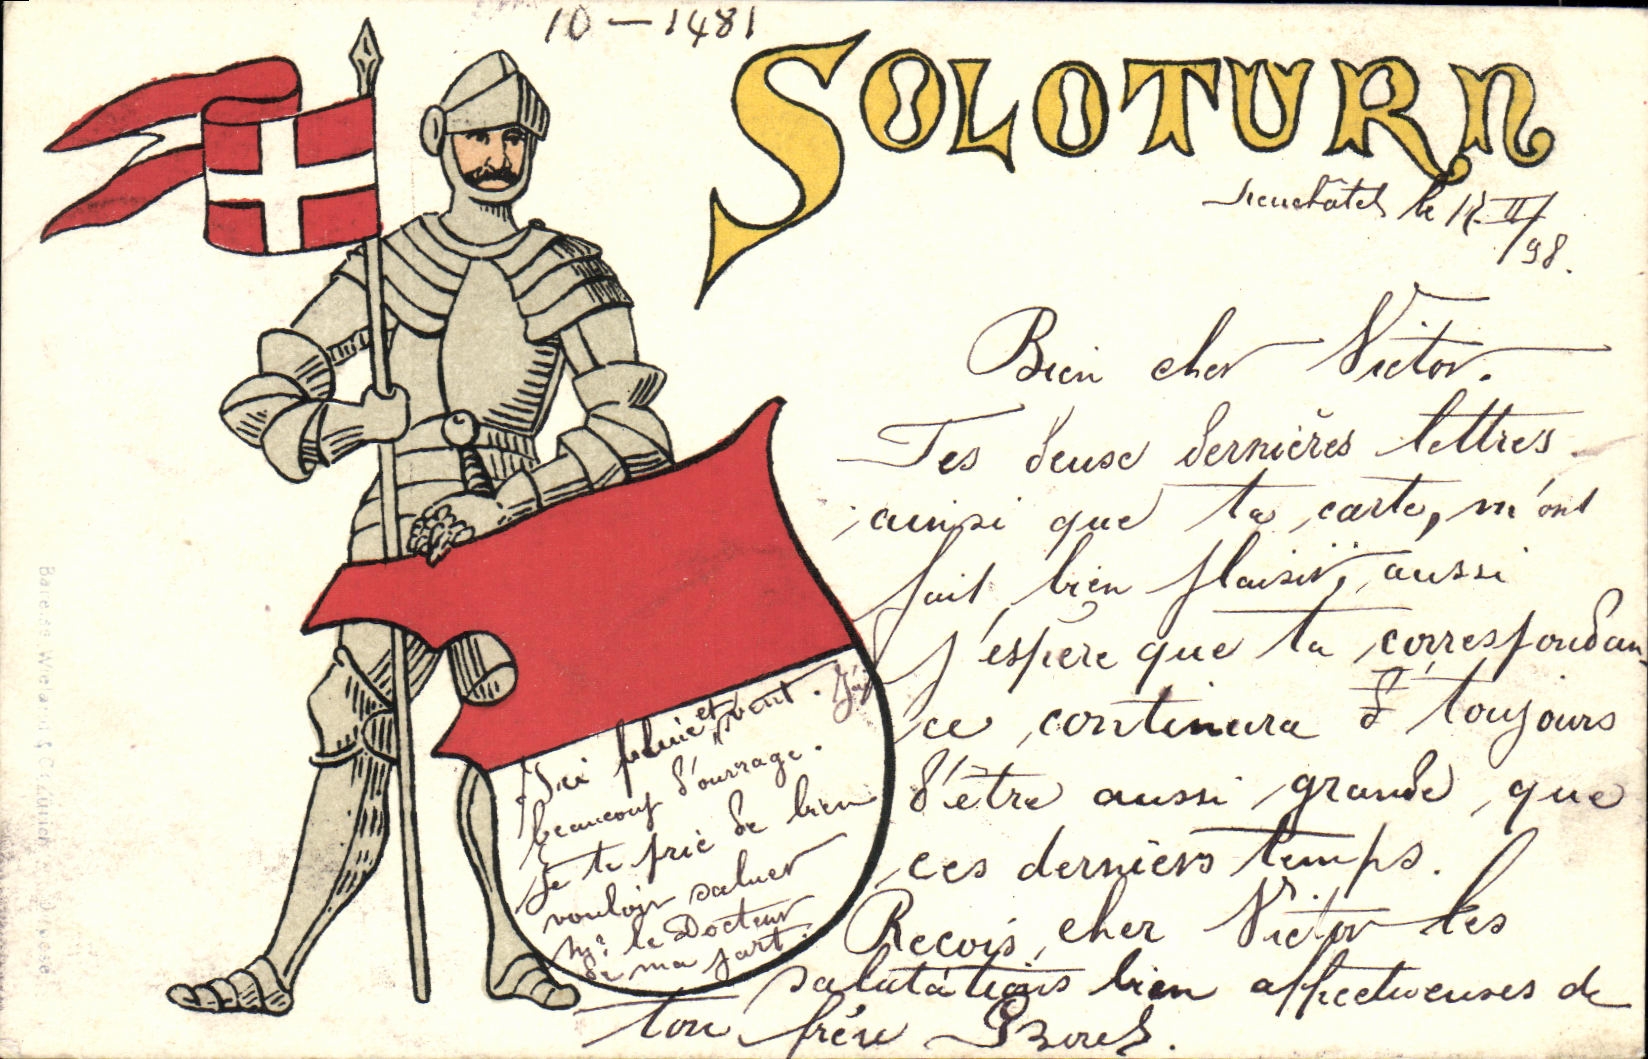 10 - 1481
SOLOTURN
Neuchâtel le 18 II/98.
Bien cher Victor.
Tes deux dernières lettres
ainsi que ta carte, m'ont
fait bien plaisir, aussi
j'espère que ta correspondan
ce continura d toujours
d'être aussi grande que
ces derniers temps.
Reçois, cher Victor les
salutations bien affectueuses de
ton frère Borel.
Ici pluie et vent. J'ai
beaucoup d'ouvrage.
Je te prie de bien
vouloir saluer
Mr. le Docteur
de ma part.